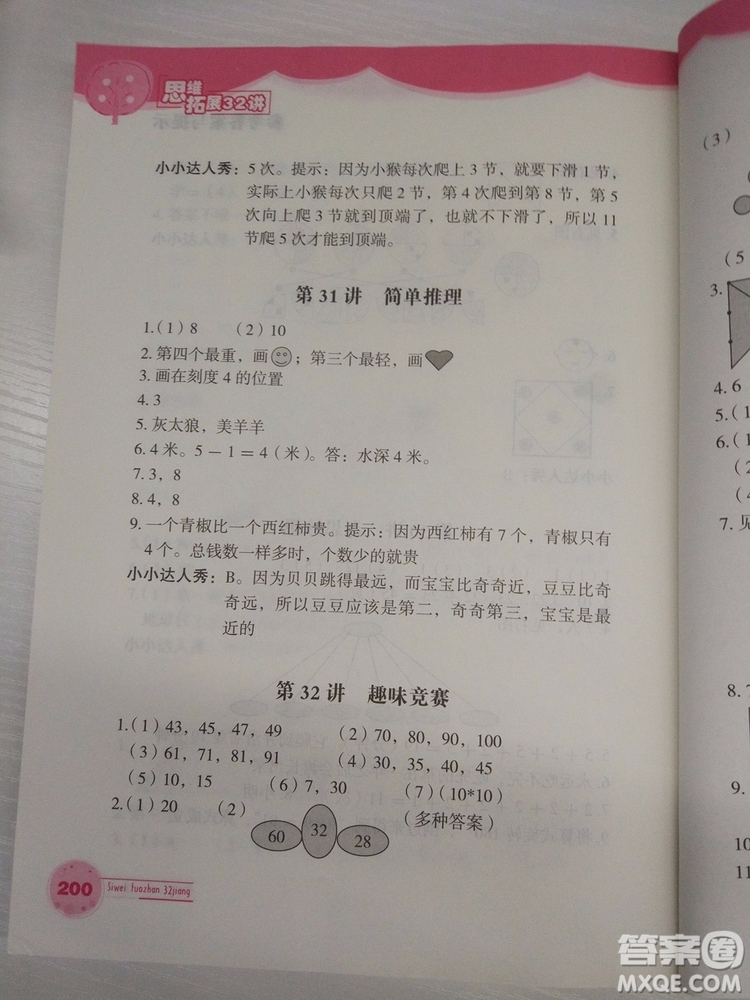 思维
拓展32讲
小小达人秀：5 次。提示：因为小猴每次爬上 3 节，就要下滑 1 节，
实际上小猴每次只爬 2 节，第 4 次爬到第 8 节，第 5
次向上爬 3 节就到顶端了，也就不下滑了，所以 11
节爬 5 次才能到顶端。
第 31 讲　简单推理
1.(1) 8　(2) 10
2. 第四个最重，画；第三个最轻，画
3. 画在刻度 4 的位置
4. 3
5. 灰太狼，美羊羊
6. 4 米。5－1＝4（米）。答：水深 4 米。
7. 3，8
8. 4，8
9. 一个青椒比一个西红柿贵。提示：因为西红柿有 7 个，青椒只有
4 个。总钱数一样多时，个数少的就贵
小小达人秀：B。因为贝贝跳得最远，而宝宝比奇奇近，豆豆比奇
奇远，所以豆豆应该是第二，奇奇第三，宝宝是最
近的
第 32 讲　趣味竞赛
1.(1) 43，45，47，49　(2) 70，80，90，100
(3) 61，71，81，91　(4) 30，35，40，45
(5) 10，15　(6) 7，30　(7) (10*10)
2.(1) 20　(2)　(多种答案)
60 32 28
200 Siwei tuozhan 32jiang
(3)
(5
3.
4. 6
5. (1
6. (1
(2
(4
7. 见
8. 7
9.
10
11
答案圈
MXQE.COM